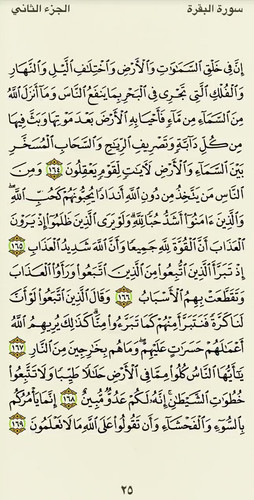 سورة البقرة الجزء الثاني
إِنَّ فِي خَلْقِ ٱلسَّمَٰوَٰتِ وَٱلْأَرْضِ وَٱخْتِلَٰفِ ٱلَّيْلِ وَٱلنَّهَارِ
وَٱلْفُلْكِ ٱلَّتِي تَجْرِي فِي ٱلْبَحْرِ بِمَا يَنفَعُ ٱلنَّاسَ وَمَآ أَنزَلَ ٱللَّهُ
مِنَ ٱلسَّمَآءِ مِن مَّآءٍ فَأَحْيَا بِهِ ٱلْأَرْضَ بَعْدَ مَوْتِهَا وَبَثَّ فِيهَا
مِن كُلِّ دَآبَّةٍ وَتَصْرِيفِ ٱلرِّيَٰحِ وَٱلسَّحَابِ ٱلْمُسَخَّرِ
بَيْنَ ٱلسَّمَآءِ وَٱلْأَرْضِ لَأٓيَٰتٍ لِّقَوْمٍ يَعْقِلُونَ ١٦٤ وَمِنَ
ٱلنَّاسِ مَن يَتَّخِذُ مِن دُونِ ٱللَّهِ أَندَادًا يُحِبُّونَهُمْ كَحُبِّ ٱللَّهِۖ
وَٱلَّذِينَ ءَامَنُوٓا۟ أَشَدُّ حُبًّا لِّلَّهِۗ وَلَوْ يَرَى ٱلَّذِينَ ظَلَمُوٓا۟ إِذْ يَرَوْنَ
ٱلْعَذَابَ أَنَّ ٱلْقُوَّةَ لِلَّهِ جَمِيعًا وَأَنَّ ٱللَّهَ شَدِيدُ ٱلْعَذَابِ ١٦٥
إِذْ تَبَرَّأَ ٱلَّذِينَ ٱتُّبِعُوا۟ مِنَ ٱلَّذِينَ ٱتَّبَعُوا۟ وَرَأَوُا۟ ٱلْعَذَابَ
وَتَقَطَّعَتْ بِهِمُ ٱلْأَسْبَابُ ١٦٦ وَقَالَ ٱلَّذِينَ ٱتَّبَعُوا۟ لَوْ أَنَّ
لَنَا كَرَّةً فَنَتَبَرَّأَ مِنْهُمْ كَمَا تَبَرَّءُوا۟ مِنَّاۗ كَذَٰلِكَ يُرِيهِمُ ٱللَّهُ
أَعْمَٰلَهُمْ حَسَرَٰتٍ عَلَيْهِمْۖ وَمَا هُم بِخَٰرِجِينَ مِنَ ٱلنَّارِ ١٦٧
يَٰٓأَيُّهَا ٱلنَّاسُ كُلُوا۟ مِمَّا فِي ٱلْأَرْضِ حَلَٰلًا طَيِّبًا وَلَا تَتَّبِعُوا۟
خُطُوَٰتِ ٱلشَّيْطَٰنِۚ إِنَّهُۥ لَكُمْ عَدُوٌّ مُّبِينٌ ١٦٨ إِنَّمَا يَأْمُرُكُم
بِٱلسُّوٓءِ وَٱلْفَحْشَآءِ وَأَن تَقُولُوا۟ عَلَى ٱللَّهِ مَا لَا تَعْلَمُونَ ١٦٩
٢٥